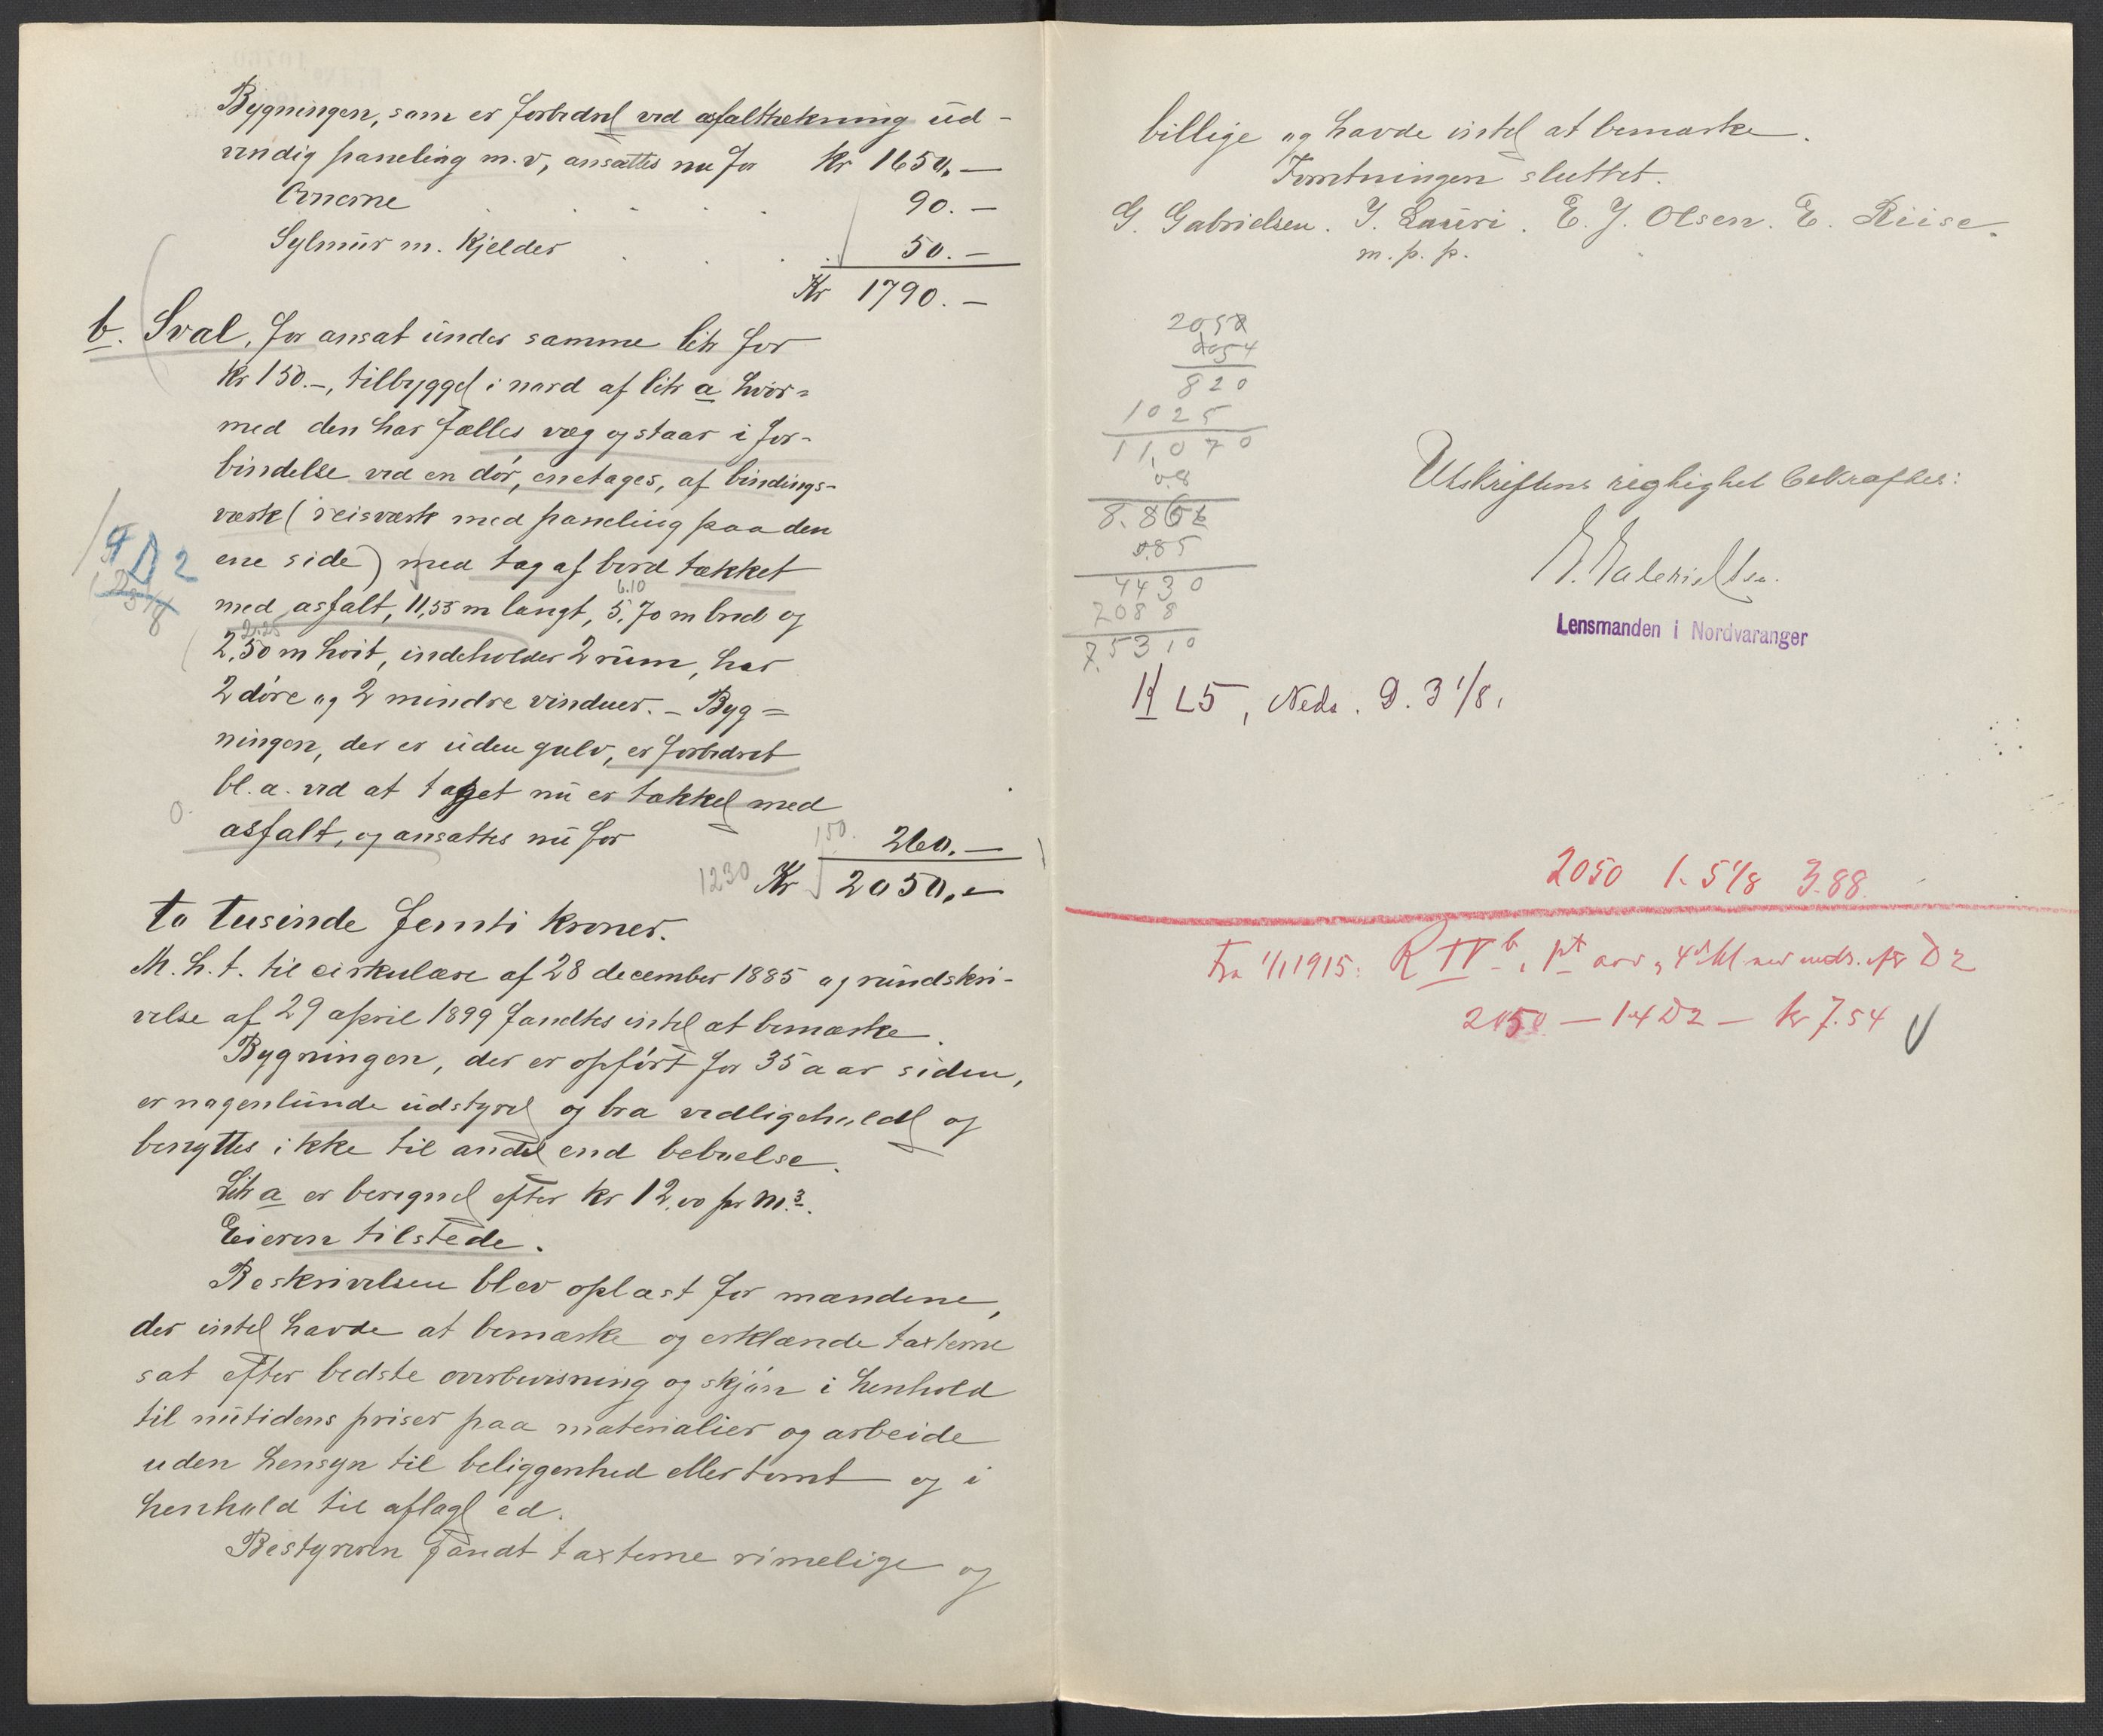 Bygningen, som er forbedret ved asfalttækning ud-
vendig paneling m.v, ansættes nu for Kr 1650,—
Ovnerne . . . . . 90.—
Sylmur m. Kjelder . . . . 50.—
Kr 1790.—
b. Sval, før ansat under samme litr for
Kr 150.—, tilbygget i nord af litr a hvor=
med den har fælles væg og staar i for-
bindelse ved en dør, enetages, af bindings-
værk (reisværk med paneling paa den
ene side) med tag af bord tækket
6.10
med asfalt, 11,55 m langt, 5,70 m bred og
2.25
2,50 m høit, indeholder 2 rum, har
2 døre og 2 mindre vinduer. – Byg=
ningen, der er uden gulv, er forbedret
bl. a. ved at taget nu er tækket med
0.
asfalt, og ansættes nu for 150. 260.—
1230 Kr 2050,—
D 2
to tusinde femti kroner.
M. h. t. til cirkulære af 28 december 1885 og rundskri-
velse af 29 april 1899 fandtes intet at bemærke.
Bygningen, der er opført for 35 aar siden,
er nogenlunde udstyret og bra vedligeholdt og
benyttes ikke til andet end beboelse.
Litr a er beregnet efter kr 12.00 pr m.3.
Eieren tilstede.
Beskrivelsen blev oplæst for mændene,
der intet havde at bemærke og erklærede taxterne
sat efter bedste overbevisning og skjøn i henhold
til nutidens priser paa materialier og arbeide
uden hensyn til beliggenhed eller tomt og i
henhold til aflagt ed.
Bestyreren fandt taxterne rimelige og
billige og havde intet at bemærke.
Forretningen sluttet.
G. Gabrielsen. I. Lauri. E. J. Olsen. E. Riise.
m. p. p.
2050
054
820
1025
11,070
0.8
8.856
0.85
4430
7088
7.5310
Utskriftens rigtighet bekræftes:
G. Gabrielsen.
Lensmanden i Nordvaranger
Kl L5, Neds. D. 3 1/8,
2050 1. 5 1/8 3.88.
Fra 1/1 1915: R IV b, 4de kl. med neds. efter D 2
2050 — 14 D2 — kr 7.54